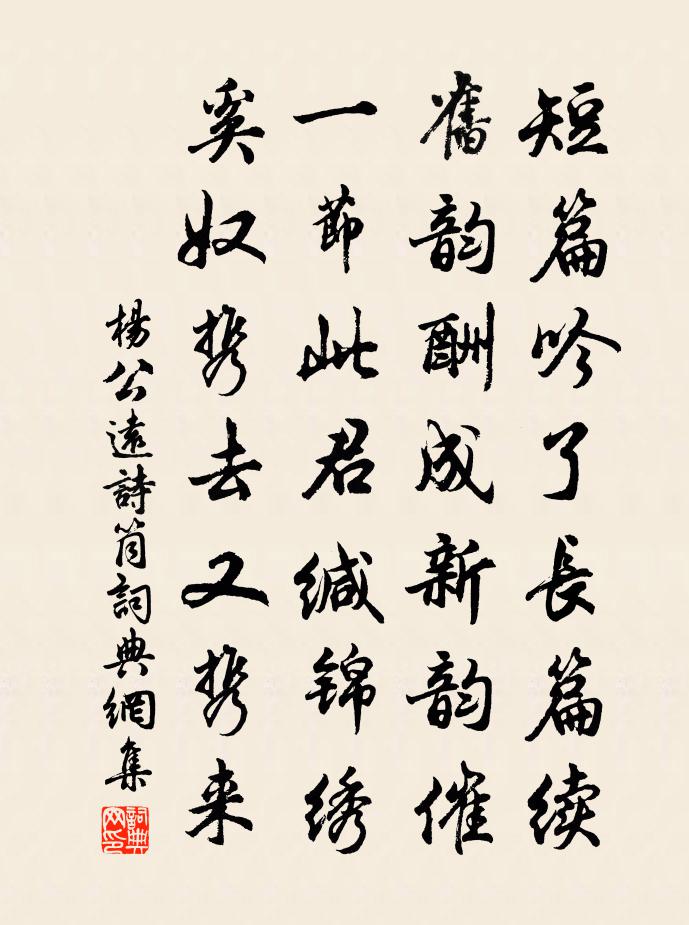 短篇吟了長篇续
舊韵酬成新韵催
一節此君缄锦绣
奚奴携去又携来
楊公遠詩筒詞典網集
詞典网印